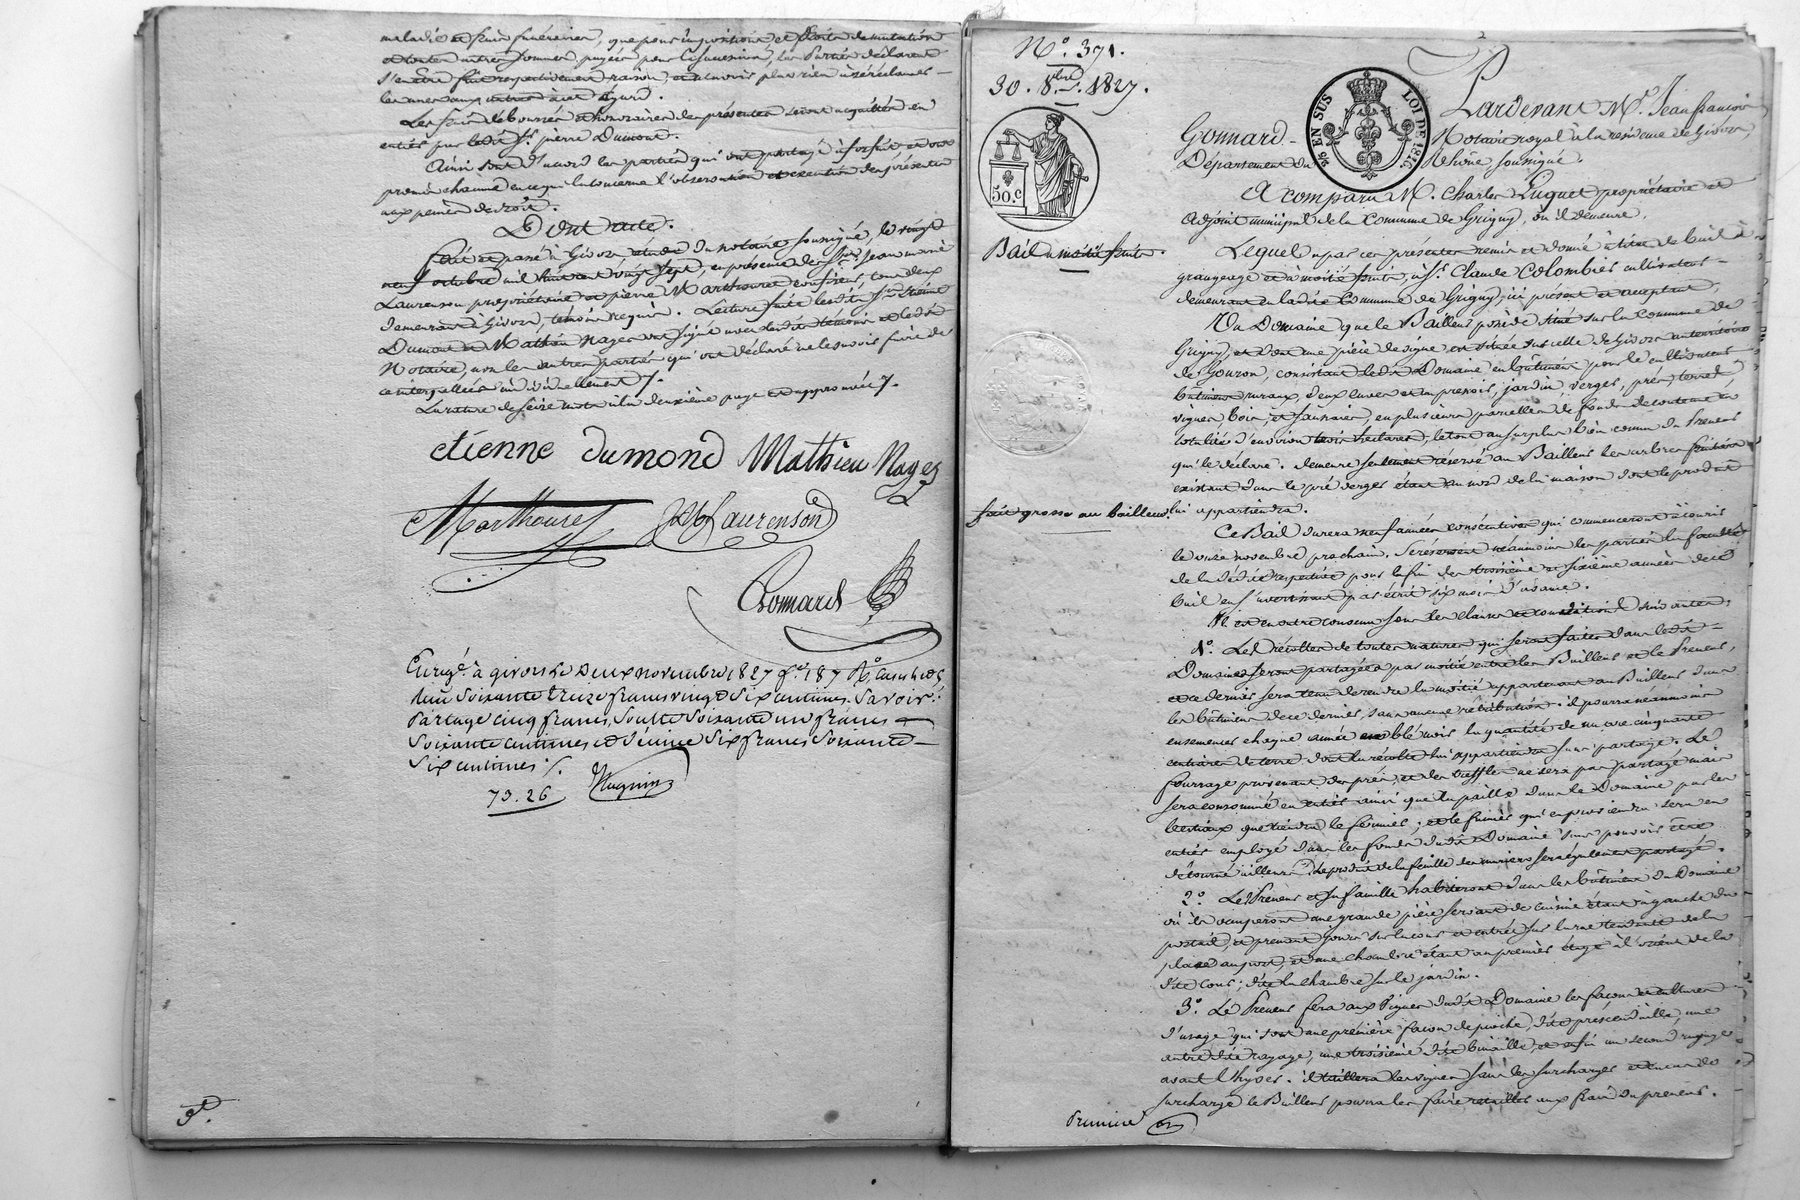 maladie et frais funéraires, que pour impositions et droits de mutation
et toutes autres sommes payées pour la succession, les Parties déclarent
s'en être fait respectivement raison, et n'avoir plus rien à se réclamer
les unes aux autres à cet égard.
Les frais déboursés et honoraires des présentes seront acquittés en
entier par ledit Sr. pierre Dumont.
Ainsi sont d'accord les parties qui ont partagé à forfait et ont
promis chacune en ce qui la concerne l'observation et exécution des présentes
aux peines de droit.
Dont acte.
Fait et passé à Givors, étude du notaire soussigné, le vingt
neuf octobre mil huit cent vingt sept, en présence des Srs jean marie
Laurenson propriétaire et pierre Marthouret confiseur tous deux
demeurant à Givors, témoins requis. Lecture faite lesdits Srs. Etienne
Dumont et Mathieu Nagez ont signé avec lesdits témoins et ledit
Notaire, non les autres parties qui ont déclaré ne le savoir faire de
ce interpellées individuellement /.
La rature de seize mots à la deuxième page est approuvée /.
etienne dumond Mathieu Nagez
Marthouret Laurenson
Gonnard
Enregé. à givors le Deux novembre 1827 fo. 187 Ro. cases
Reçu Soixante treize francs vingt Six centimes. Savoir:
Partage cinq francs, Soulte Soixante un francs
Soixante centimes et dixième Six francs Soixante
Six centimes /.
73.26 Huguin
No. 371.
30. 8bre. 1827.
EN SUS LOI DE 1816
50.c
Bail à moitié fruits.
fait grosse au bailleur.
Pardevant Me. Jean françois
Gonnard Notaire royal à la residence de Givors,
Département du Rhône soussigné.
A comparu M. Charles Luquet propriétaire et
Adjoint municipal de la Commune de Grigny, où il demeure,
Lequel a par ces présentes remis et donné à titre de bail à
grangeage et à moitié fruits, à Sr. Claude Colombier cultivateur
demeurant en ladite Commune de Grigny, ici présent et acceptant,
Un Domaine que le Bailleur possède situé sur la commune de
Grigny, et dont une pièce de vigne est située sur celle de Givors au territoire
de Gouzon, consistant ledit Domaine en bâtiments pour le cultivateur
bâtiments ruraux, deux cuves et un pressoir, jardin, verger, prés, terres,
vignes, bois, et saussaies, en plusieurs parcelles de fonds de contenue en
totalité d'environ trois hectares, le tout au surplus bien connu du Preneur
qui le déclare. demeure seulement réservé au Bailleur les arbres fruitiers
existant dans le pré verger étant au nord de la maison dont le produit
lui appartiendra.
Ce Bail durera neuf années consécutives qui commenceront à courir
le onze novembre prochain. Se réservent néanmoins les parties la faculté
de la dédite respective pour la fin des troisième et sixième années dudit
bail en s'avertissant par écrit six mois d'avance.
Il est en outre convenu sous les clauses et conditions suivantes:
1o. Les récoltes de toutes natures qui seront faites dans ledit
Domaine seront partagées par moitié entre le Bailleur et le Preneur,
et ce dernier sera tenu de rendre la moitié appartenant au Bailleur dans
les bâtiments de ce dernier, sans aucune rétribution. il pourra néanmoins
ensemencer chaque année en blé noir la quantité de un are cinquante
centiares de terre dont la récolte lui appartiendra sans partage. Le
fourrage provenant des prés, et des treffles ne sera pas partagé mais
sera consommé en entier ainsi que la paille dans le Domaine par les
bestiaux que tiendra le fermier; et le fumier qui en proviendra sera en
entier employé dans les fonds dudit Domaine sans pouvoir être
détourné ailleurs. Le produit de la feuille des muriers sera également partagé.
2o. Le Preneur et sa famille habiteront dans les bâtiments du Domaine
où ils occuperont une grande pièce servant de cuisine étant à gauche du
portail, et prenant jours sur la cour et entrée sur la rue tendante de la
place au port, et une chambre étant au premier étage à l'orient de la
dite cour; dite la chambre sur le jardin.
3o. Le Preneur fera aux Vignes dudit Domaine les façons et cultures
d'usage qui sont une première façon de pioche, dite présendaille, une
autre dite rayage, une troisième dite binaille, et enfin un second rayage
avant l'hyver. il taillera les vignes sans les surcharger et en cas de
surcharge le Bailleur pourra les faire retailler aux frais du preneur.
Première